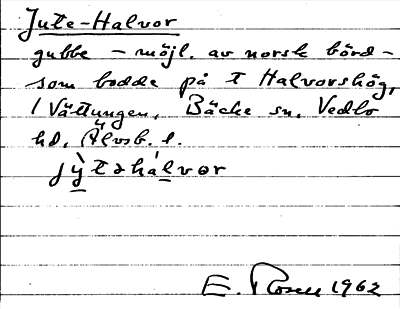 Jute-Halvor
gubbe – möjl. av norsk börd –
som bodde på t Halvorshög,
/ Vättungen, Bäcke sn, Vedbo
hd, Älvsb. l.
jỳtəhálvor
E. Rosén 1962